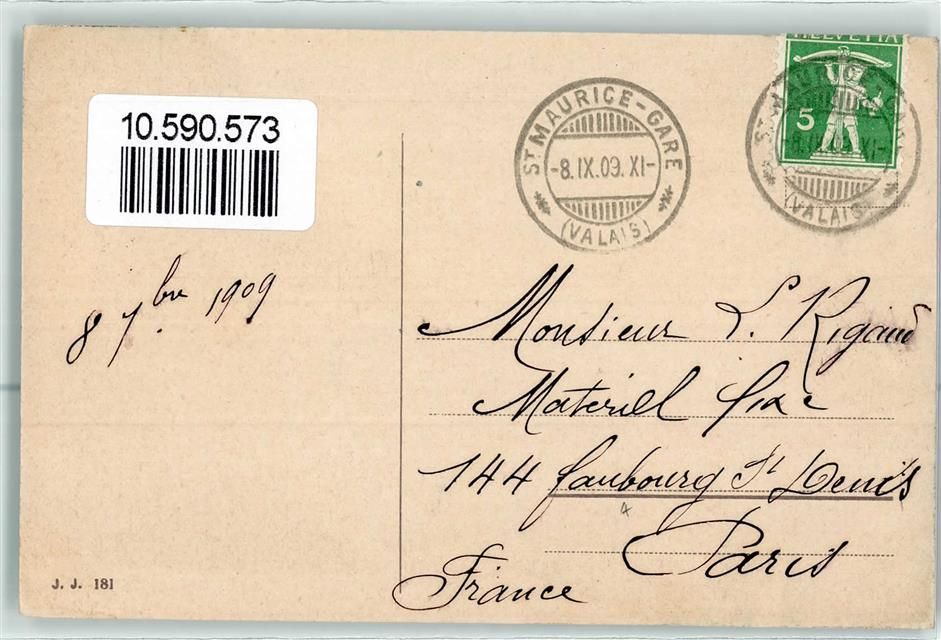 10.590.573
HELVETIA
5
ST MAURICE-GARE
-8.IX.09.XI-
(VALAIS)
ST MAURICE-GARE
-8.IX.09.XI-
(VALAIS)
8 7bre 1909
Monsieur L. Rigaud
Matériel fixe
144 faubourg St Denis
Paris
France
J. J. 181